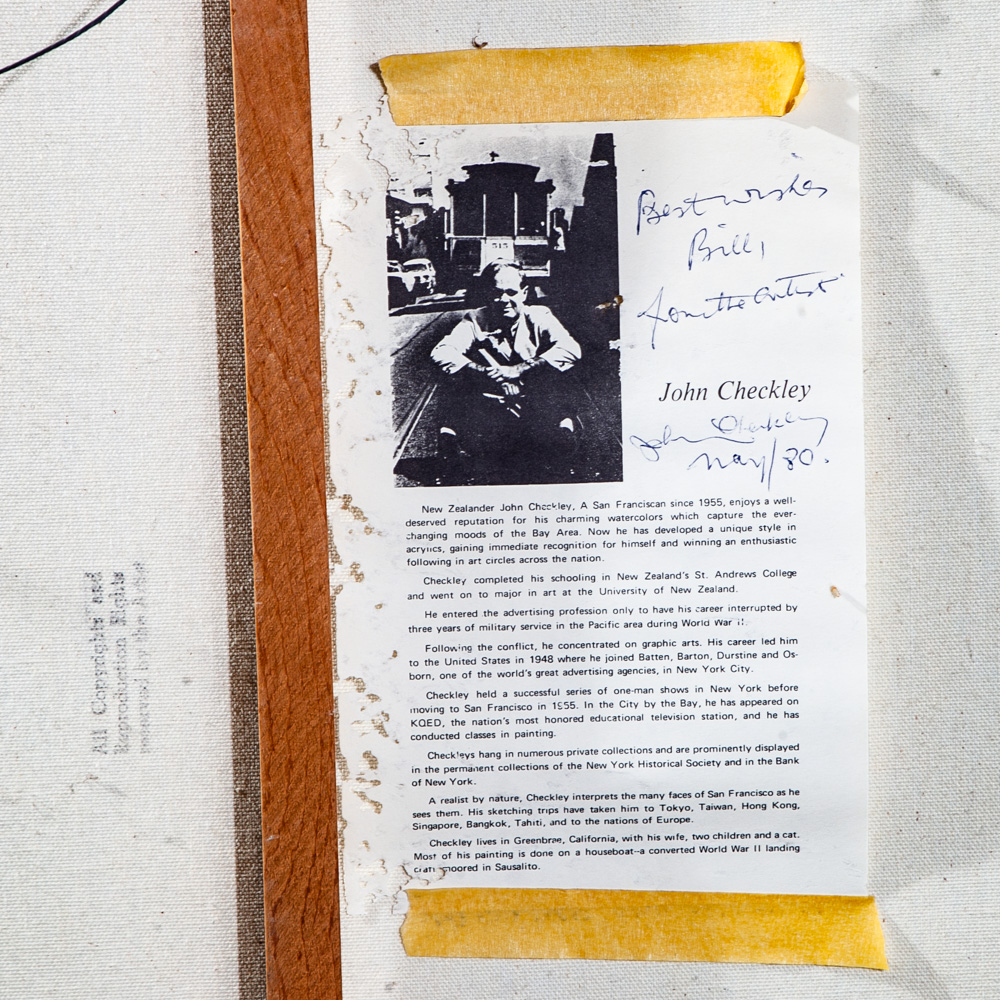 515
Best wishes
Bill,
from the artist
John Checkley
John Checkley
May/80.
New Zealander John Checkley, A San Franciscan since 1955, enjoys a well-
deserved reputation for his charming watercolors which capture the ever-
changing moods of the Bay Area. Now he has developed a unique style in
acrylics, gaining immediate recognition for himself and winning an enthusiastic
following in art circles across the nation.
Checkley completed his schooling in New Zealand's St. Andrews College
and went on to major in art at the University of New Zealand.
He entered the advertising profession only to have his career interrupted by
three years of military service in the Pacific area during World War II.
Following the conflict, he concentrated on graphic arts. His career led him
to the United States in 1948 where he joined Batten, Barton, Durstine and Os-
born, one of the world's great advertising agencies, in New York City.
Checkley held a successful series of one-man shows in New York before
moving to San Francisco in 1955. In the City by the Bay, he has appeared on
KQED, the nation's most honored educational television station, and he has
conducted classes in painting.
Checkleys hang in numerous private collections and are prominently displayed
in the permanent collections of the New York Historical Society and in the Bank
of New York.
A realist by nature, Checkley interprets the many faces of San Francisco as he
sees them. His sketching trips have taken him to Tokyo, Taiwan, Hong Kong,
Singapore, Bangkok, Tahiti, and to the nations of Europe.
Checkley lives in Greenbrae, California, with his wife, two children and a cat.
Most of his painting is done on a houseboat--a converted World War II landing
craft moored in Sausalito.
All Copyrights and
Reproduction Rights
reserved by the Artist